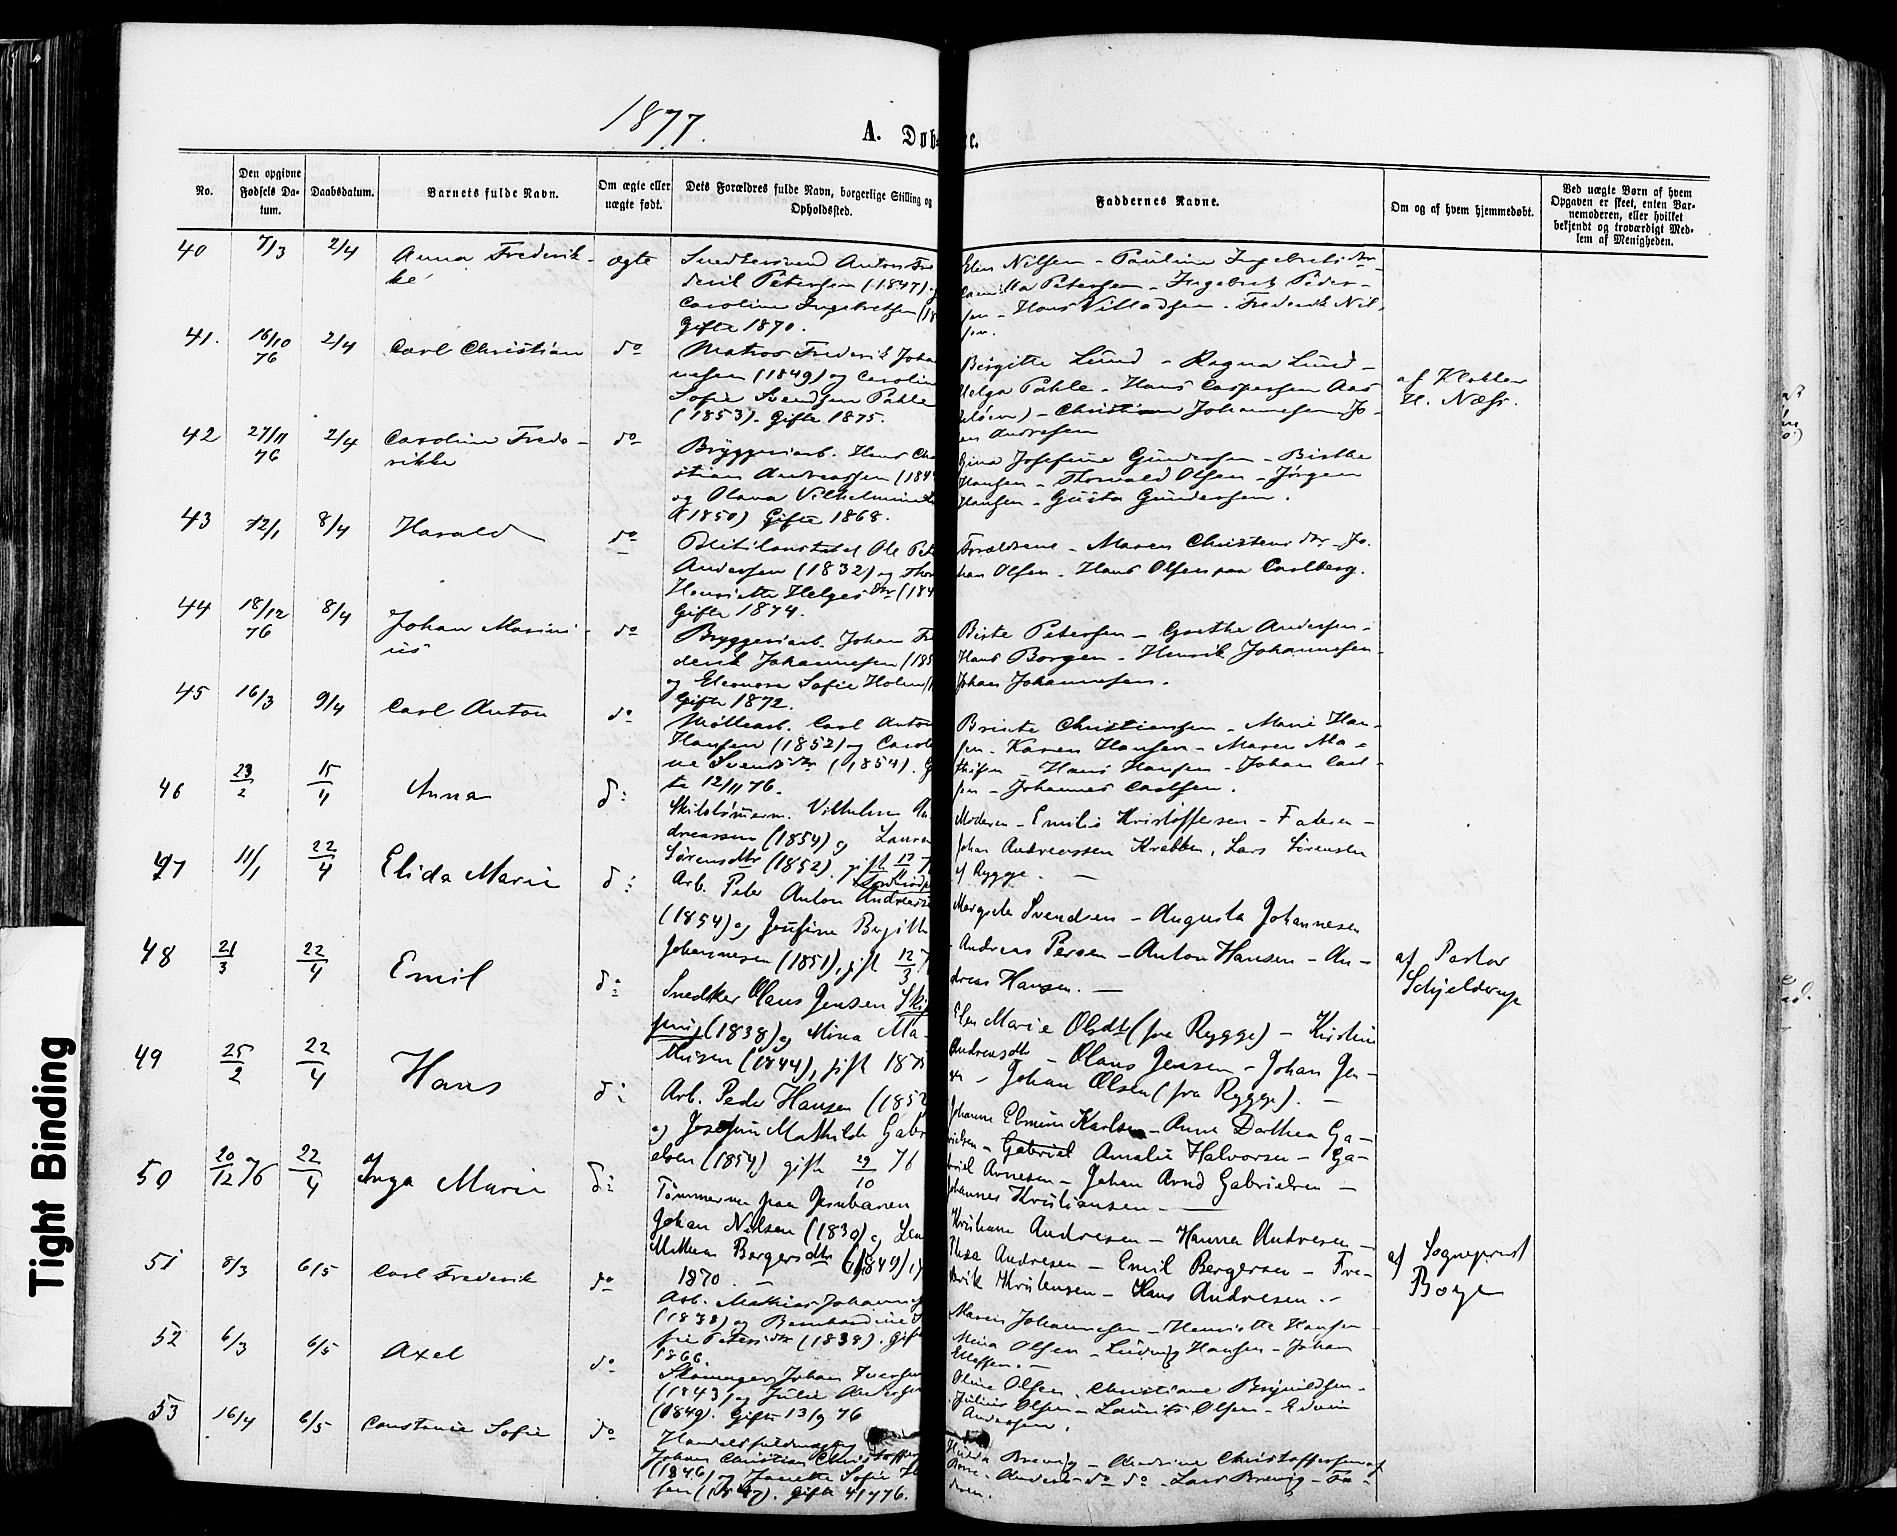 1877.
A. Døb
e.
No.
Den opgivne Fødsels Da-tum.
Daabsdatum.
Barnets fulde Navn.
Om ægte eller uægte født.
Dets Forældres fulde Navn, borgerlige Stilling og Opholdssted.
Faddernes Navne.
Om og af hvem hjemmedøbt.
Ved uægte Børn af hvem Opgaven er skeet, enten Bar-nemoderen, eller hvilket bekjendt og troværdigt Med-lem af Menigheden.
40 7/3 2/4 Anna Frederik-
ke
ægte
Snedkersvend Anton Fre
derik Petersen (1847)
Caroline Ingebretsen (18
Gifte 1870.
Elen Nilsen - Pauline Ingebretsdtr -
Camilla Petersen - Ingebret Peder-
sen - Hans Villadsen - Frederik Nil-
sen.
41. 16/10 76 2/4 Carl Christian do
Matros Frederik Johan
nesen (1849) og Caroline
Sofie Svendsen Pahle
(1853). Gifte 1875.
Birgitte Lund - Ragna Lund -
Helga Pahle - Hans Caspersen Aas
- Christian Johannesen Jo-
Andresen
af Klokker
H. Næss.
42 27/11 76 2/4 Caroline Frede-
rikke
do
Bryggeriarb. Hans Chri
stian Andreassen (184
og Olava Vilhelmine
(1850) Gifte 1868.
Gina Josefine Gundersen - Birthe
Hansen - Thorvald Olsen - Jørgen
Hansen - Gusta Gundersen.
43 12/1 8/4 Harald do
Ole Pet
Andersen (1832) og Thor
Henriette Helgesdtr (184
Gifte 1874.
Forældrene - Maren Christensdtr - Jo-
han Olsen - Hans Olsen paa Carlberg.
44 18/12 76 8/4 Johan Marin-
ius
do
Bryggeriarb. Johan Fre
derik Johannesen (185
og Eleonora Sofie Holm
Gifte 1872.
Birte Petersen - Grethe Andersen -
Hans Borgen - Henrik Johannesen -
Johan Johannesen.
45 16/3 9/4 Carl Anton do
Møllearb. Carl Anton
Hansen (1852) og Caroli
ne Svendsdtr (1854). G
te 12/11 76.
Birgte Christiansen - Marie Han-
sen - Karen Hansen - Maren Ma-
thisen - Hans Hansen - Johan Carl-
sen - Johannes Carlsen.
46 23/2 15/4 Anna do
Skibstømerm. Vilhelm An
dreassen (1854) og Lauren
Sørensdtr (1852), gift 17
Moderen - Emilie Kristoffersen - Faderen -
Johan Andreassen Krabben, Lars Sørensen
af Rygge. -
47 11/1 22/4 Elida Marie do
Arb. Peter Anton Andreasse
(1854) og Josefine Birgitth
Johannesen (1851), gift 12/3 7
Margrete Svendsen - Augusta Johannesen
- Andreas Persen - Anton Hansen - An-
dreas Hansen. -
48 21/3 22/4 Emil do
Snedker Olaus Jensen
(1838) og Mina Ma-
thisen (1844), gift 1875
Elen Marie Olsdtr (fra Rygge) - Kristine
Andreasdtr - Olaus Jensen - Johan Jen-
sen - Johan Olsen (fra Rygge). -
af Pastor
Schjelderup
49 25/2 22/4 Hans do
Arb. Peder Hansen (1852
og Josefine Mathilde Gabri
elsen (1854) gifte 29/10 76
Johanne Elmine Karlsen - Anne Dorthea Ga-
brielsen - Gabriel Amalie Halvorsen - Ga-
briel Arnesen - Johan Arnd Gabrielsen -
Johannes Kristiansen -
50 20/12 76 22/4 Inga Marie do
Tømmerm. paa Jernbanen
Johan Nilsen (1830) og Len
Mathea Bergersdtr (1849),
1870. -
Kristiane Andresen - Hanna Andresen -
Thea Andresen - Emil Bergersen - Fre-
derik Kristensen - Hans Andresen. -
af Sogneprest
Boye
51 8/3 6/5 Carl Frederik do
Arb. Mathias Johannes
(1838) og Bernhardine
fie Petersdtr (1838). Gift
1866.
Maren Johannesen - Henriette Hansen -
Mina Olsen - Ludvig Hansen - Johan
Ellefsen. -
52 6/3 6/5 Axel do
Skomager Johan Iversen
(1843) og Julie Anderse
(1849). Gifte 13/9 76
Oline Olsen. Christiane Brynildsen -
Julius Olsen - Laurits Olsen - Edvin
Andersen.
53 16/4 6/5 Constance Sofie do
Handelsfuldmægtig
Johan Christian Christoffersen
(1846) og Janette Sofie H
sen (1847). Gifte 4/4 76.
Hilda Brevig - Andrine Christoffersen af
- Anders do do - Lars Brevig - Fa-
deren.
Tight Binding